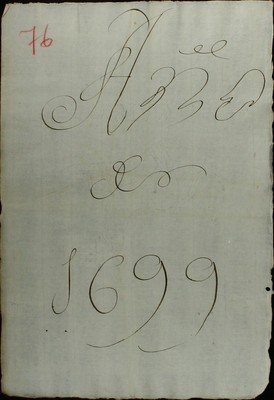 76
Año
de
1699